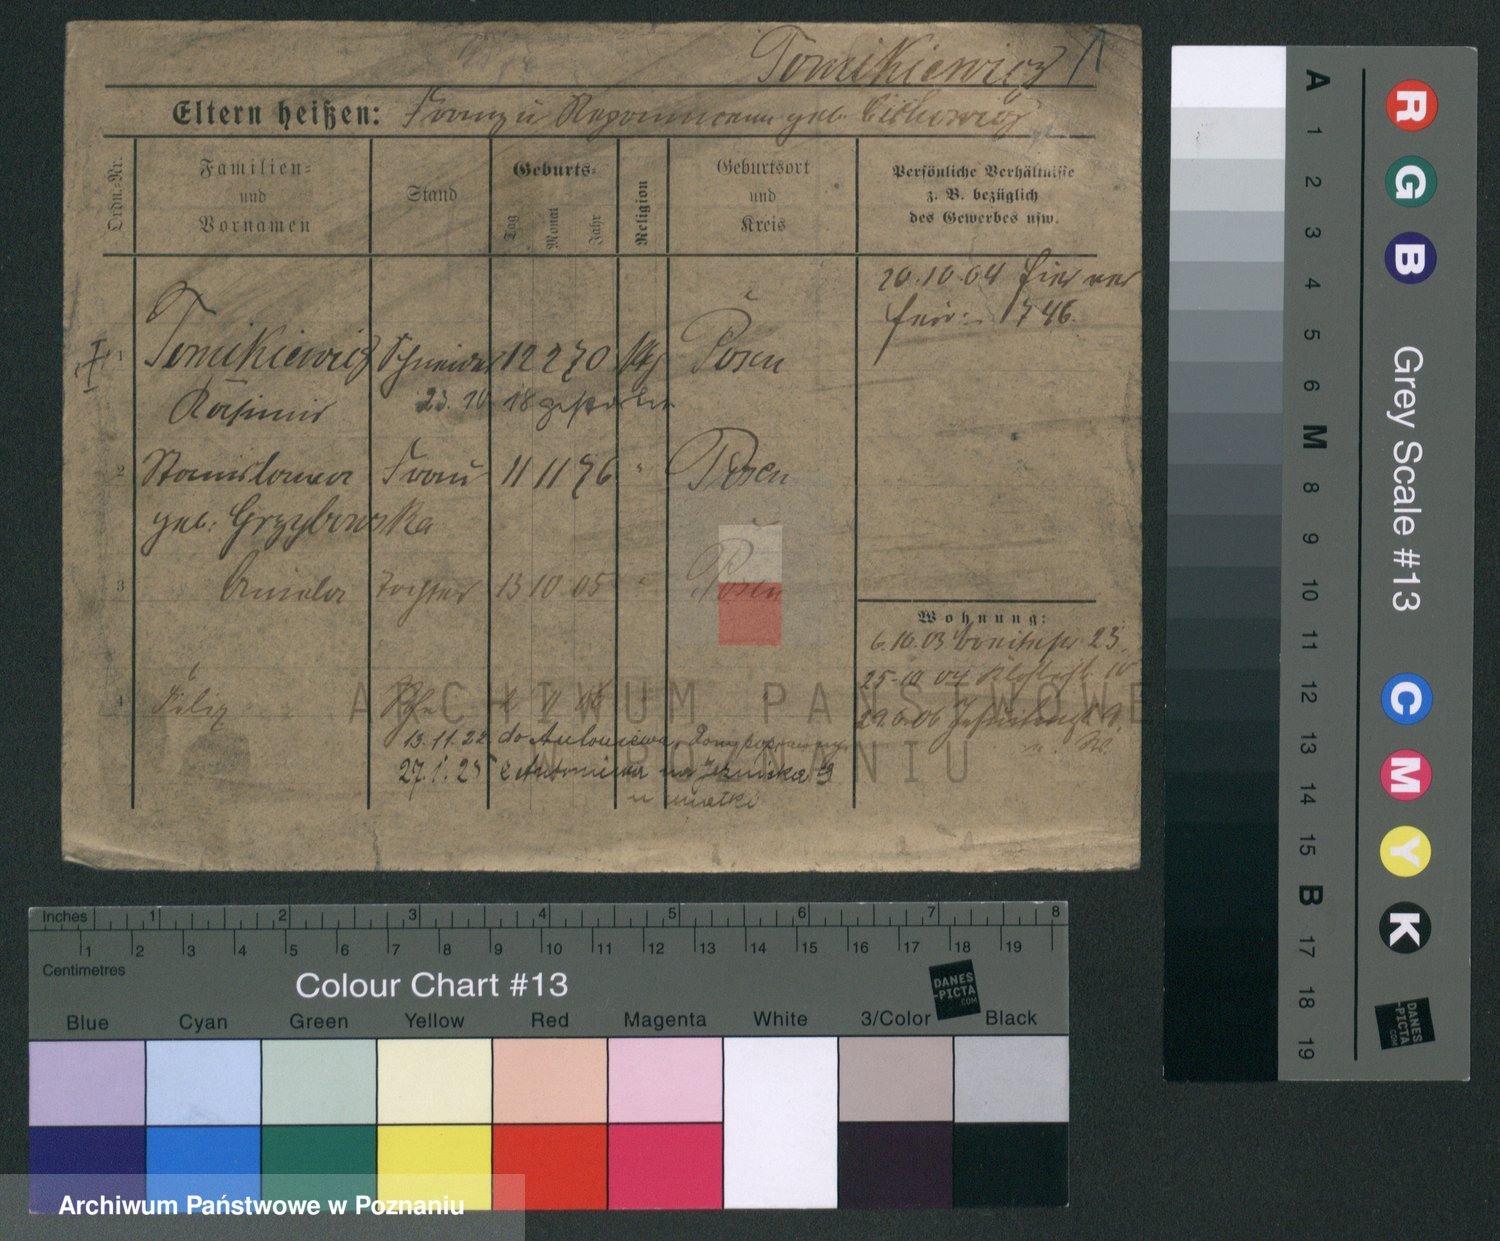 Tomikiewicz
Eltern heißen: Franz u Nepomucena geb. Cichowicz
Ordn.-Nr.
Familien-
und
Vornamen
Stand
Geburts-
Tag
Monat
Jahr
Religion
Geburtsort
und
Kreis
Persönliche Verhältnisse
z. B. bezüglich
des Gewerbes usw.
20.10.04
1746.
1 Tomikiewicz Schneider 12 2 70 Posen
Kasimir 23. 10 18 gestorben
2 Stanislawa Frau 11 11 76 " Posen
geb. Grzybowska
3 Aniela Tochter 13 10 05 " Posen
Wohnung:
6.10.03 23.
25.10 04
29.6.06
4 Feliz
13.11.22 do Antoniewa,
27.1.25 z Antoniewa na 9
u matki
ARCHIWUM PAŃSTWOWE
W POZNANIU
Inches 1 2 3 4 5 6 7 8
1 2 3 4 5 6 7 8 9 10 11 12 13 14 15 16 17 18 19
Centimetres
Colour Chart #13
DANES
-PICTA
.COM
Blue Cyan Green Yellow Red Magenta White 3/Color Black
Archiwum Państwowe w Poznaniu
A 1 2 3 4 5 6 M 8 9 10 11 12 13 14 15 B 17 18 19
R G B
Grey Scale #13
C M Y K
DANES
-PICTA
.COM